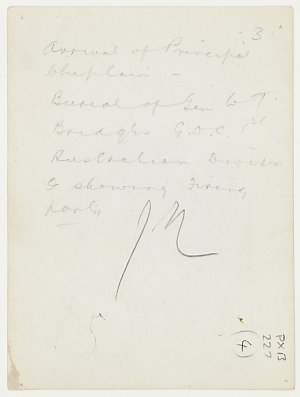 3
Arrival of Principal
Chaplain —
Burial of Gen W.T.
Bridges G.O.C. 1st
Australian Division
& showing Firing
party
PXB
227
(4)